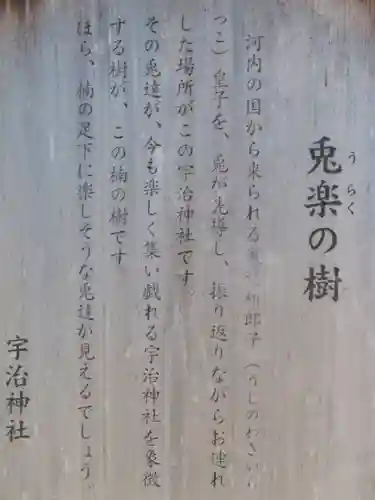 兎楽の樹
うらく
河内の国から来られる菟道稚郎子(うじのわきいら
つこ)皇子を、兎が先導し、振り返りながらお連れ
した場所がこの宇治神社です。
その兎達が、今も楽しく集い戯れる宇治神社を象徴
する樹が、この楠の樹です
ほら、楠の足下に楽しそうな兎達が見えるでしょう。
宇治神社